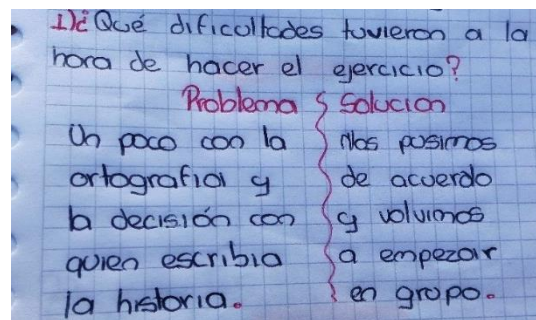 1)¿Qué dificultades tuvieron a la
hora de hacer el ejercicio?
Problema Solucion
Un poco con la
ortografia y
la decisión con
quien escribia
la historia.
Nos pusimos
de acuerdo
y volvimos
a empezar
en grupo.